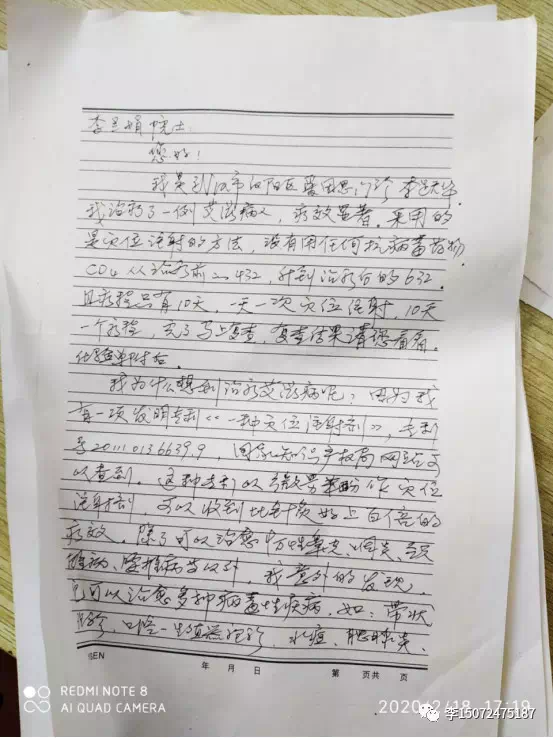 李兰娟院士:
您好!
我是武汉市汉阳区 门诊李
我治疗了一例艾滋病人，疗效显著。采用的
是穴位注射的方法，没有用任何抗病毒药物
CD4从治疗前的432，升到治疗后的632.
且疗程只有10天，一天一次穴位注射，10天
一个疗程，完了马上复查，复查结果请您看看。
化验单附后。
我为什么想到治疗艾滋病呢？因为我
有一项发明专利《一种穴位注射剂》，专利
号201110136639.9，国家知识产权局网站可
以查到。这种专利以 作穴位
注射剂，可以收到比针灸好上百倍的
疗效。除了可以治愈 鼻炎、咽炎、颈
椎病、腰椎病等以外，我意外的发现，
它可以治愈多种病毒性疾病，如：带状
疱疹、口唇-生殖器疱疹、水痘、腮腺炎、
SEN
年 月 日
第 页共 页
REDMI NOTE 8
AI QUAD CAMERA
2020/2/18 17:19
李15072475187